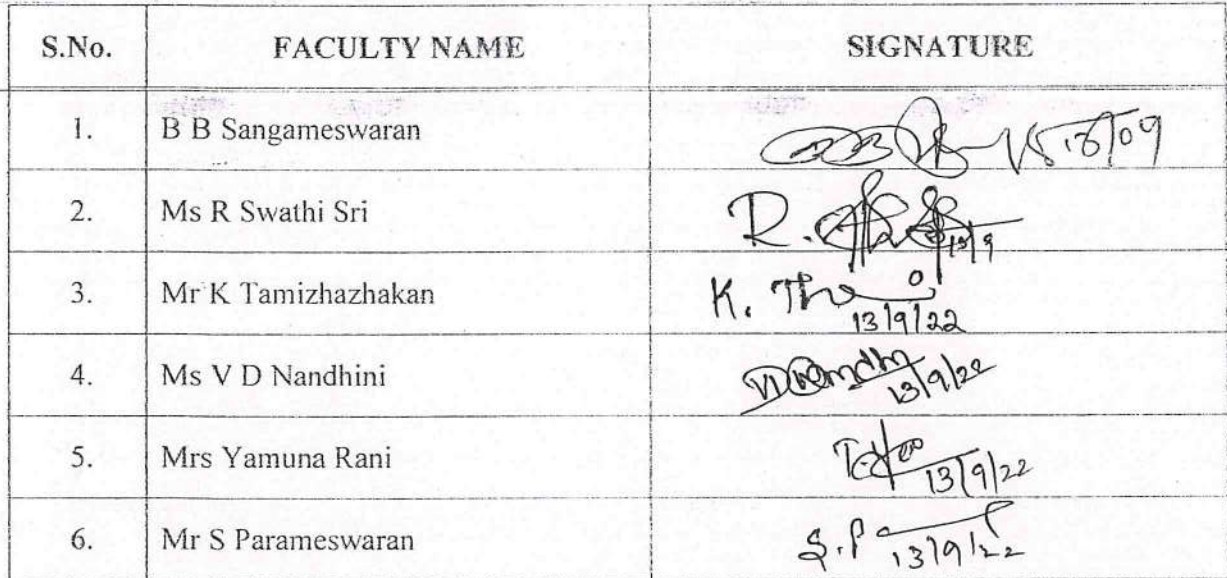 S.No. FACULTY NAME SIGNATURE
1. B B Sangameswaran
2. Ms R Swathi Sri R. 13/9
3. Mr K Tamizhazhakan K. 13/9/22
4. Ms V D Nandhini 13/9/22
5. Mrs Yamuna Rani 13/9/22
6. Mr S Parameswaran S.P 13/9/22